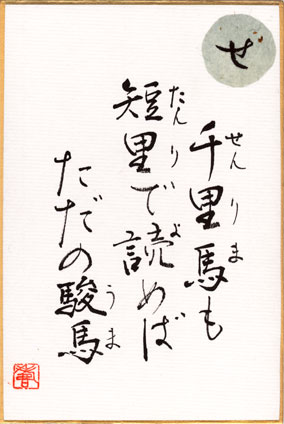 ぜ
千里馬も
せんりま
短里で読めば
たんり よ
ただの駿馬
うま